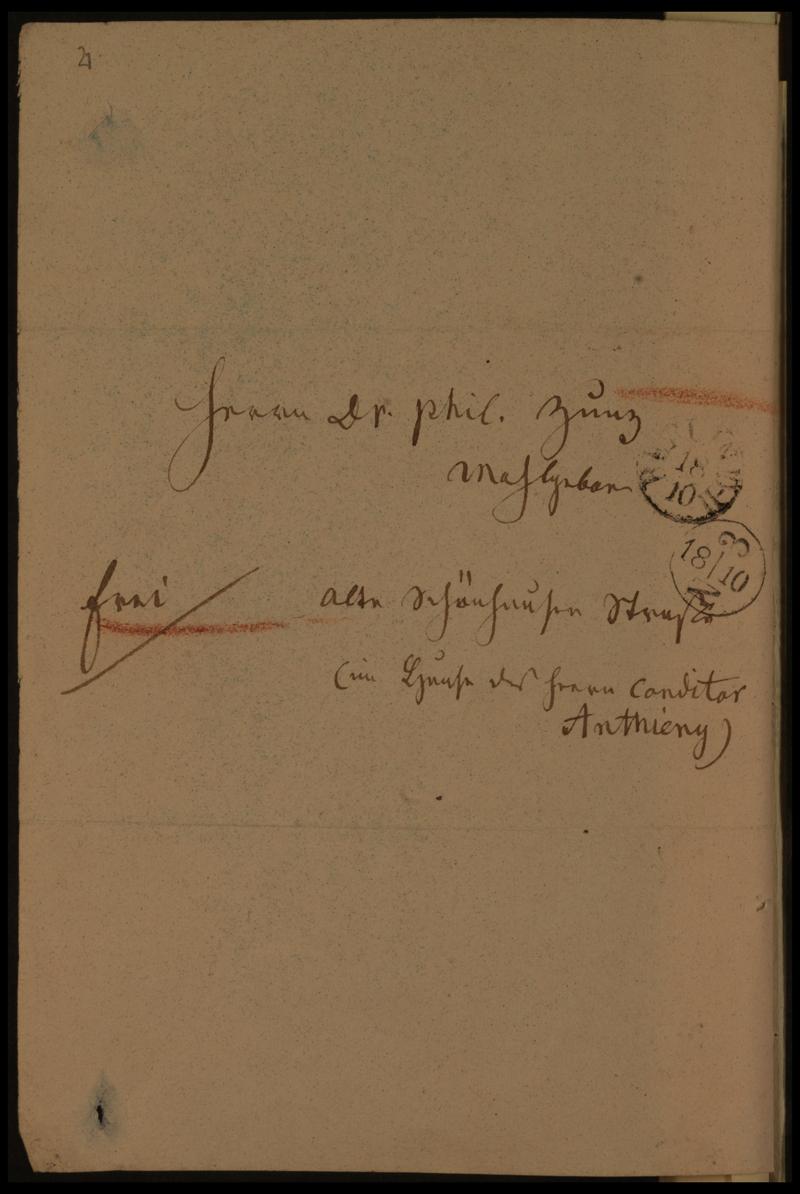 21
Herrn Dr. phil. Zunz
Wohlgeboren
18
10
3
18/10
N
frei
alte Schönhauser Strasse
(im Hause des Herrn Conditor
Anthieny)